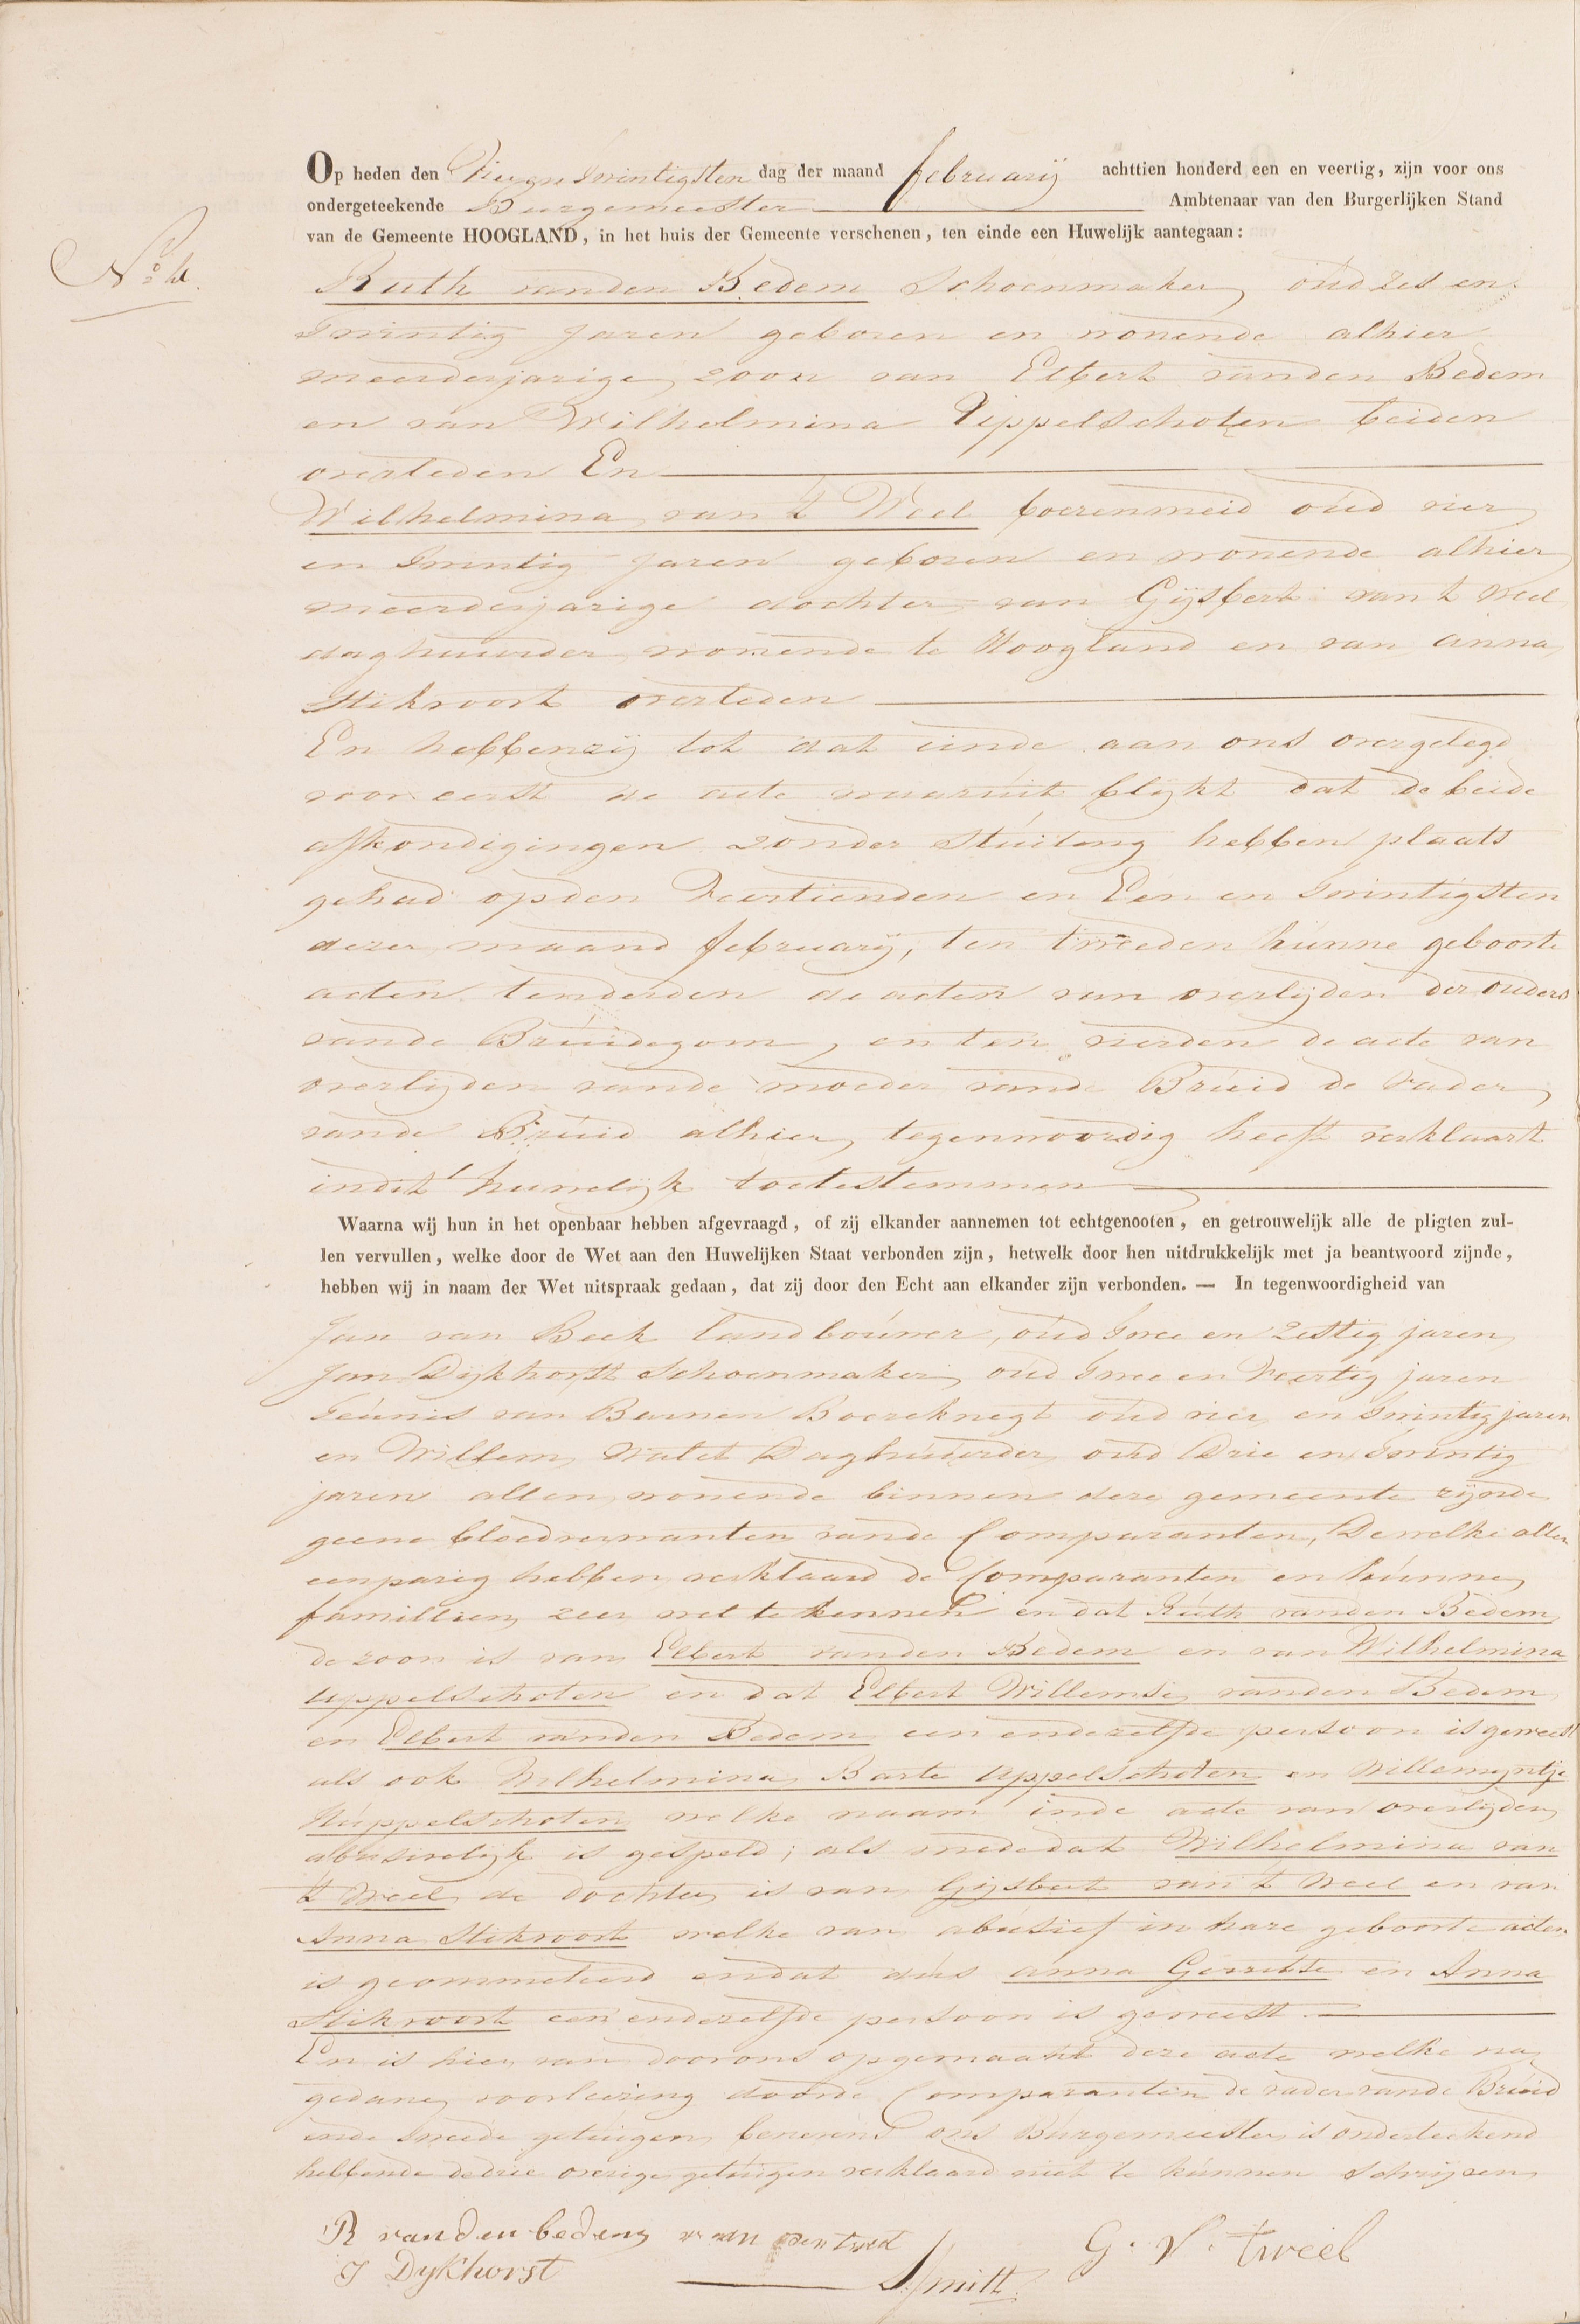 Op heden den Vier en Twintigsten dag der maand february achttien honderd een en veertig, zijn voor ons
ondergeteekende Burgemeester Ambtenaar van den Burgerlijken Stand
van de Gemeente HOOGLAND, in het huis der Gemeente verschenen, ten einde een Huwelijk aantegaan:
No 4.
Ruth vanden Bedem Schoenmaker, oud Zes en
Twintig Jaren geboren en wonende alhier
meerderjarige zoon van Elbert vanden Bedem
en van Wilhelmina Uppelschoten beiden
overleden En
Wilhelmina van t Weel boerenmeid oud vier
en Twintig Jaren geboren en wonende alhier
meerderjarige dochter van Gijsbert van t weel
daghuurder wonende te Hoogland en van anna
Stikvoort overleden
En hebben zij tot dat einde aan ons overgelegd
voor eerst de acte waaruit blijkt dat de beide
afkondigingen zonder Stuiting hebben plaats
gehad op den Veertienden en Een en Twintigsten
dezer maand february, ten tweeden hunne geboorte
acten ten derden de acten van overlijden der ouders
vande Bruidegom, en ten vierden de acte van
overlijden vande moeder vande Bruid de vader
vande Bruid alhier tegenwoordig heeft verklaart
in dit huwelijk toetestemmen
Waarna wij hun in het openbaar hebben afgevraagd, of zij elkander aannemen tot echtgenooten, en getrouwelijk alle de pligten zul-
len vervullen, welke door de Wet aan den Huwelijken Staat verbonden zijn, hetwelk door hen uitdrukkelijk met ja beantwoord zijnde,
hebben wij in naam der Wet uitspraak gedaan, dat zij door den Echt aan elkander zijn verbonden. — In tegenwoordigheid van
Jan van Beek landbouwer, oud Twee en Zestig jaren
Jan Dijkhorst Schoenmaker, oud Twee en Veertig jaren
Teunis van Burnen Boereknegt oud vier en Twintig jaren
en Willem Daghuurder oud Drie en Twintig
jaren allen wonende binnen deze gemeente zijnde
geene bloedverwanten vande Comparanten, De welke allen
eenparig hebben verklaard de Comparanten en hunne
famillien zeer wel te kennen en dat Ruth vanden Bedem
de zoon is van Elbert vanden Bedem en van Wilhelmina
Uppelschoten en dat Elbert Willemse vanden Bedem
en Elbert vanden Bedem een en dezelfde persoon is geweest
als ook Wilhelmina Barte Uppelschoten en Willemyntje
Huppelschoten welke naam inde acte van overlijden
abusivelijk is gespeld; als mede dat Wilhelmina van
t Weel de Dochter is van Gijsbert van t Weel en van
Anna Stikvoort welke van abusief in hare geboorte acten
is geommeteerd en dat dus anna Gerritse en Anna
Stikvoort een en dezelfde persoon is geweest.
En is hier van door ons opgemaakt deze acte welke na
gedane voorlezing door de Comparanten de vader vande Bruid
en de Tweede getuigen benevens ons Burgemeester is onderteekend
hebbende de drie overige getuigen verklaard niet te kunnen Schrijven
R van den bedem G. V. tweel
J Dykhorst Smitt